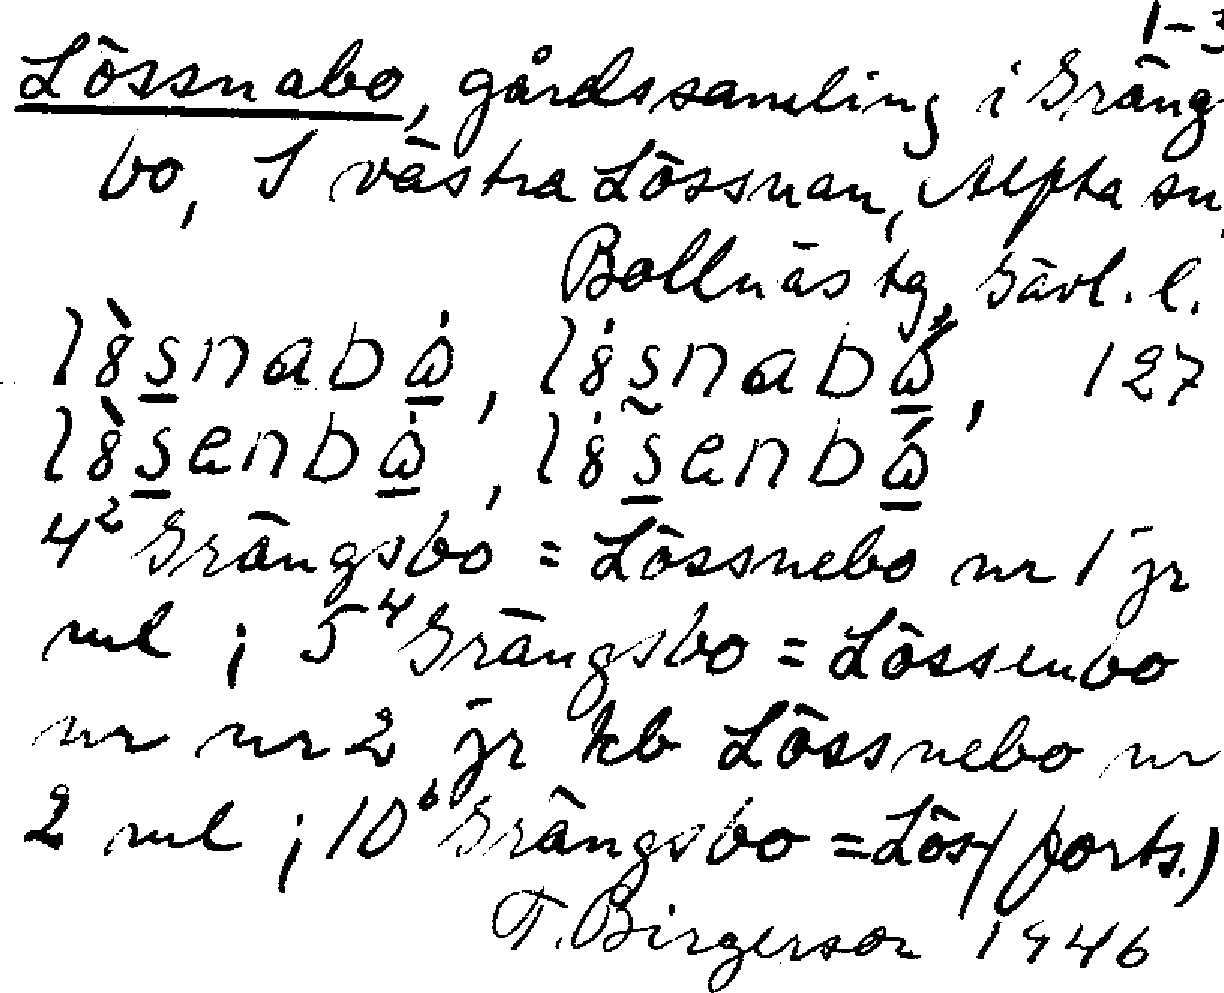 1-3
Lössnabo, gårdssamling i Gräng
bo, S västra Lössnan, Alfta sn,
Bollnäs tg, Gävl. l.
127
4² Grängsbo = Lössnebo nr 1 jr
ml ; 5⁴ Grängsbo = Lössenbo
nr nr 2 jr kb Lössnebo nr
2 ml ; 10⁶ Grängsbo = Lös/(forts.)
T. Birgerson 1946